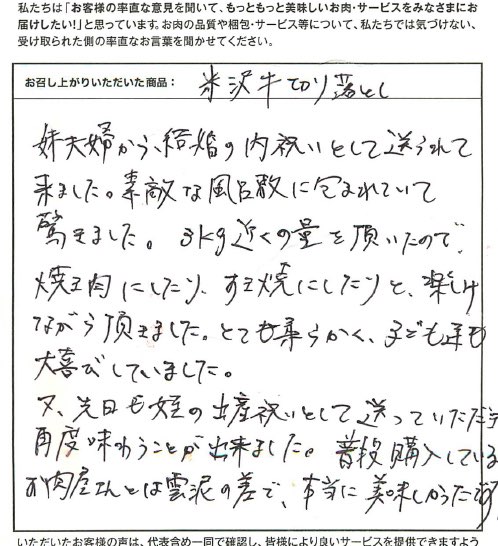 私たちは「お客様の率直な意見を聞いて、もっともっと美味しいお肉・サービスをみなさまにお
届けしたい!」と思っています。お肉の品質や梱包・サービス等について、私たちでは気づけない、
受け取られた側の率直なお言葉を聞かせてください。
お召し上がりいただいた商品： 米沢牛切り落とし
妹夫婦から、結婚の内祝いとして送られて
来ました。素敵な風呂敷に包まれていて
驚きました。3kg近くの量を頂いたので、
焼き肉にしたり、すき焼にしたりと、楽しけ
ながら頂きました。とても柔らかく、子ども達も
大喜びしていました。
又、先日も姪の出産祝いとして送っていただき
再度味わうことが出来ました。普段購入している
お肉屋さんとは雲泥の差で、本当に美味しかったです。
いただいたお客様の声は、代表含め一同で確認し、皆様により良いサービスを提供できますよう